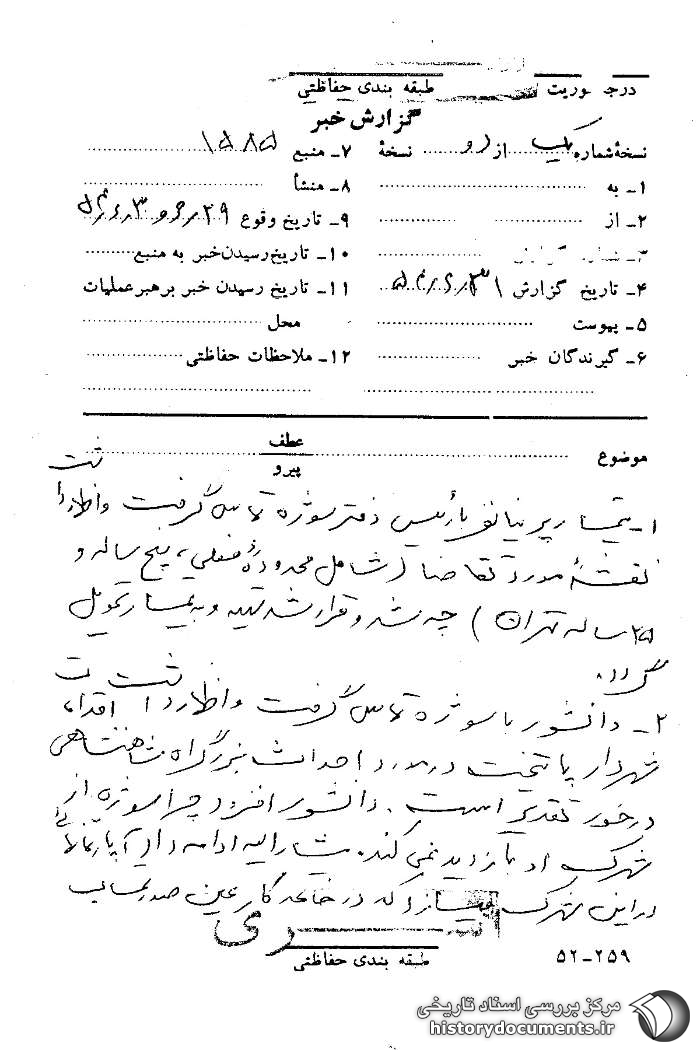 درجه فوریت طبقه بندی حفاظتی
گزارش خبر
نسخهٔ شماره یک از دو نسخهٔ ۷ـ منبع ۱۵۸۵
۱ـ به ۸ـ منشأ
۲ـ از ۹ـ تاریخ وقوع ۲۹ر۳۰ر
۳ـ شماره گزارش ۱۰ـ تاریخ رسیدن خبر به منبع
۴ـ تاریخ گزارش ۳۱ ۱۱ـ تاریخ رسیدن خبر برهبر عملیات
۵ـ پیوست محل
۶ـ گیرندگان خبر ۱۲ـ ملاحظات حفاظتی
موضوع عطف
پیرو
۱ـ تیمسار با رئیس دفتر سوژه تماس گرفت و اظهار داشت
نقشهٔ مورد تقاضا (شامل محدودهٔ فعلی، پنج ساله و
۲۵ ساله تهران) چه شد و قرار شد تهیه و به تیمسار تحویل
گردد.
۲ـ دانشور با سوژه تماس گرفت و اظهار داشت اقدام
شهردار پایتخت در مورد احداث بزرگراه شاهنشاهی
در خور تقدیر است. دانشور افزود چرا سوژه از
شهرک او بازدید نمی کند. مشارالیه ادامه داد آپارتمانهائی
در این شهرک میسازد که در خاتمه کار عین صدر
سری
طبقه بندی حفاظتی ۲۵۹ـ۵۲
مرکز بررسی اسناد تاریخی
historydocuments.ir